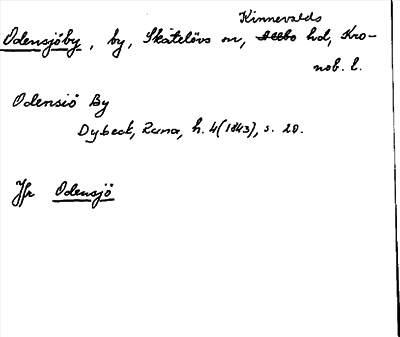 Kinnevalds
Odensjöby, by, Skatelövs sn, Allbo hd, Kro-
nob. l.
Odensiö By
Dybeck, Runa, h. 4 (1843), s. 20.
Jfr Odensjö